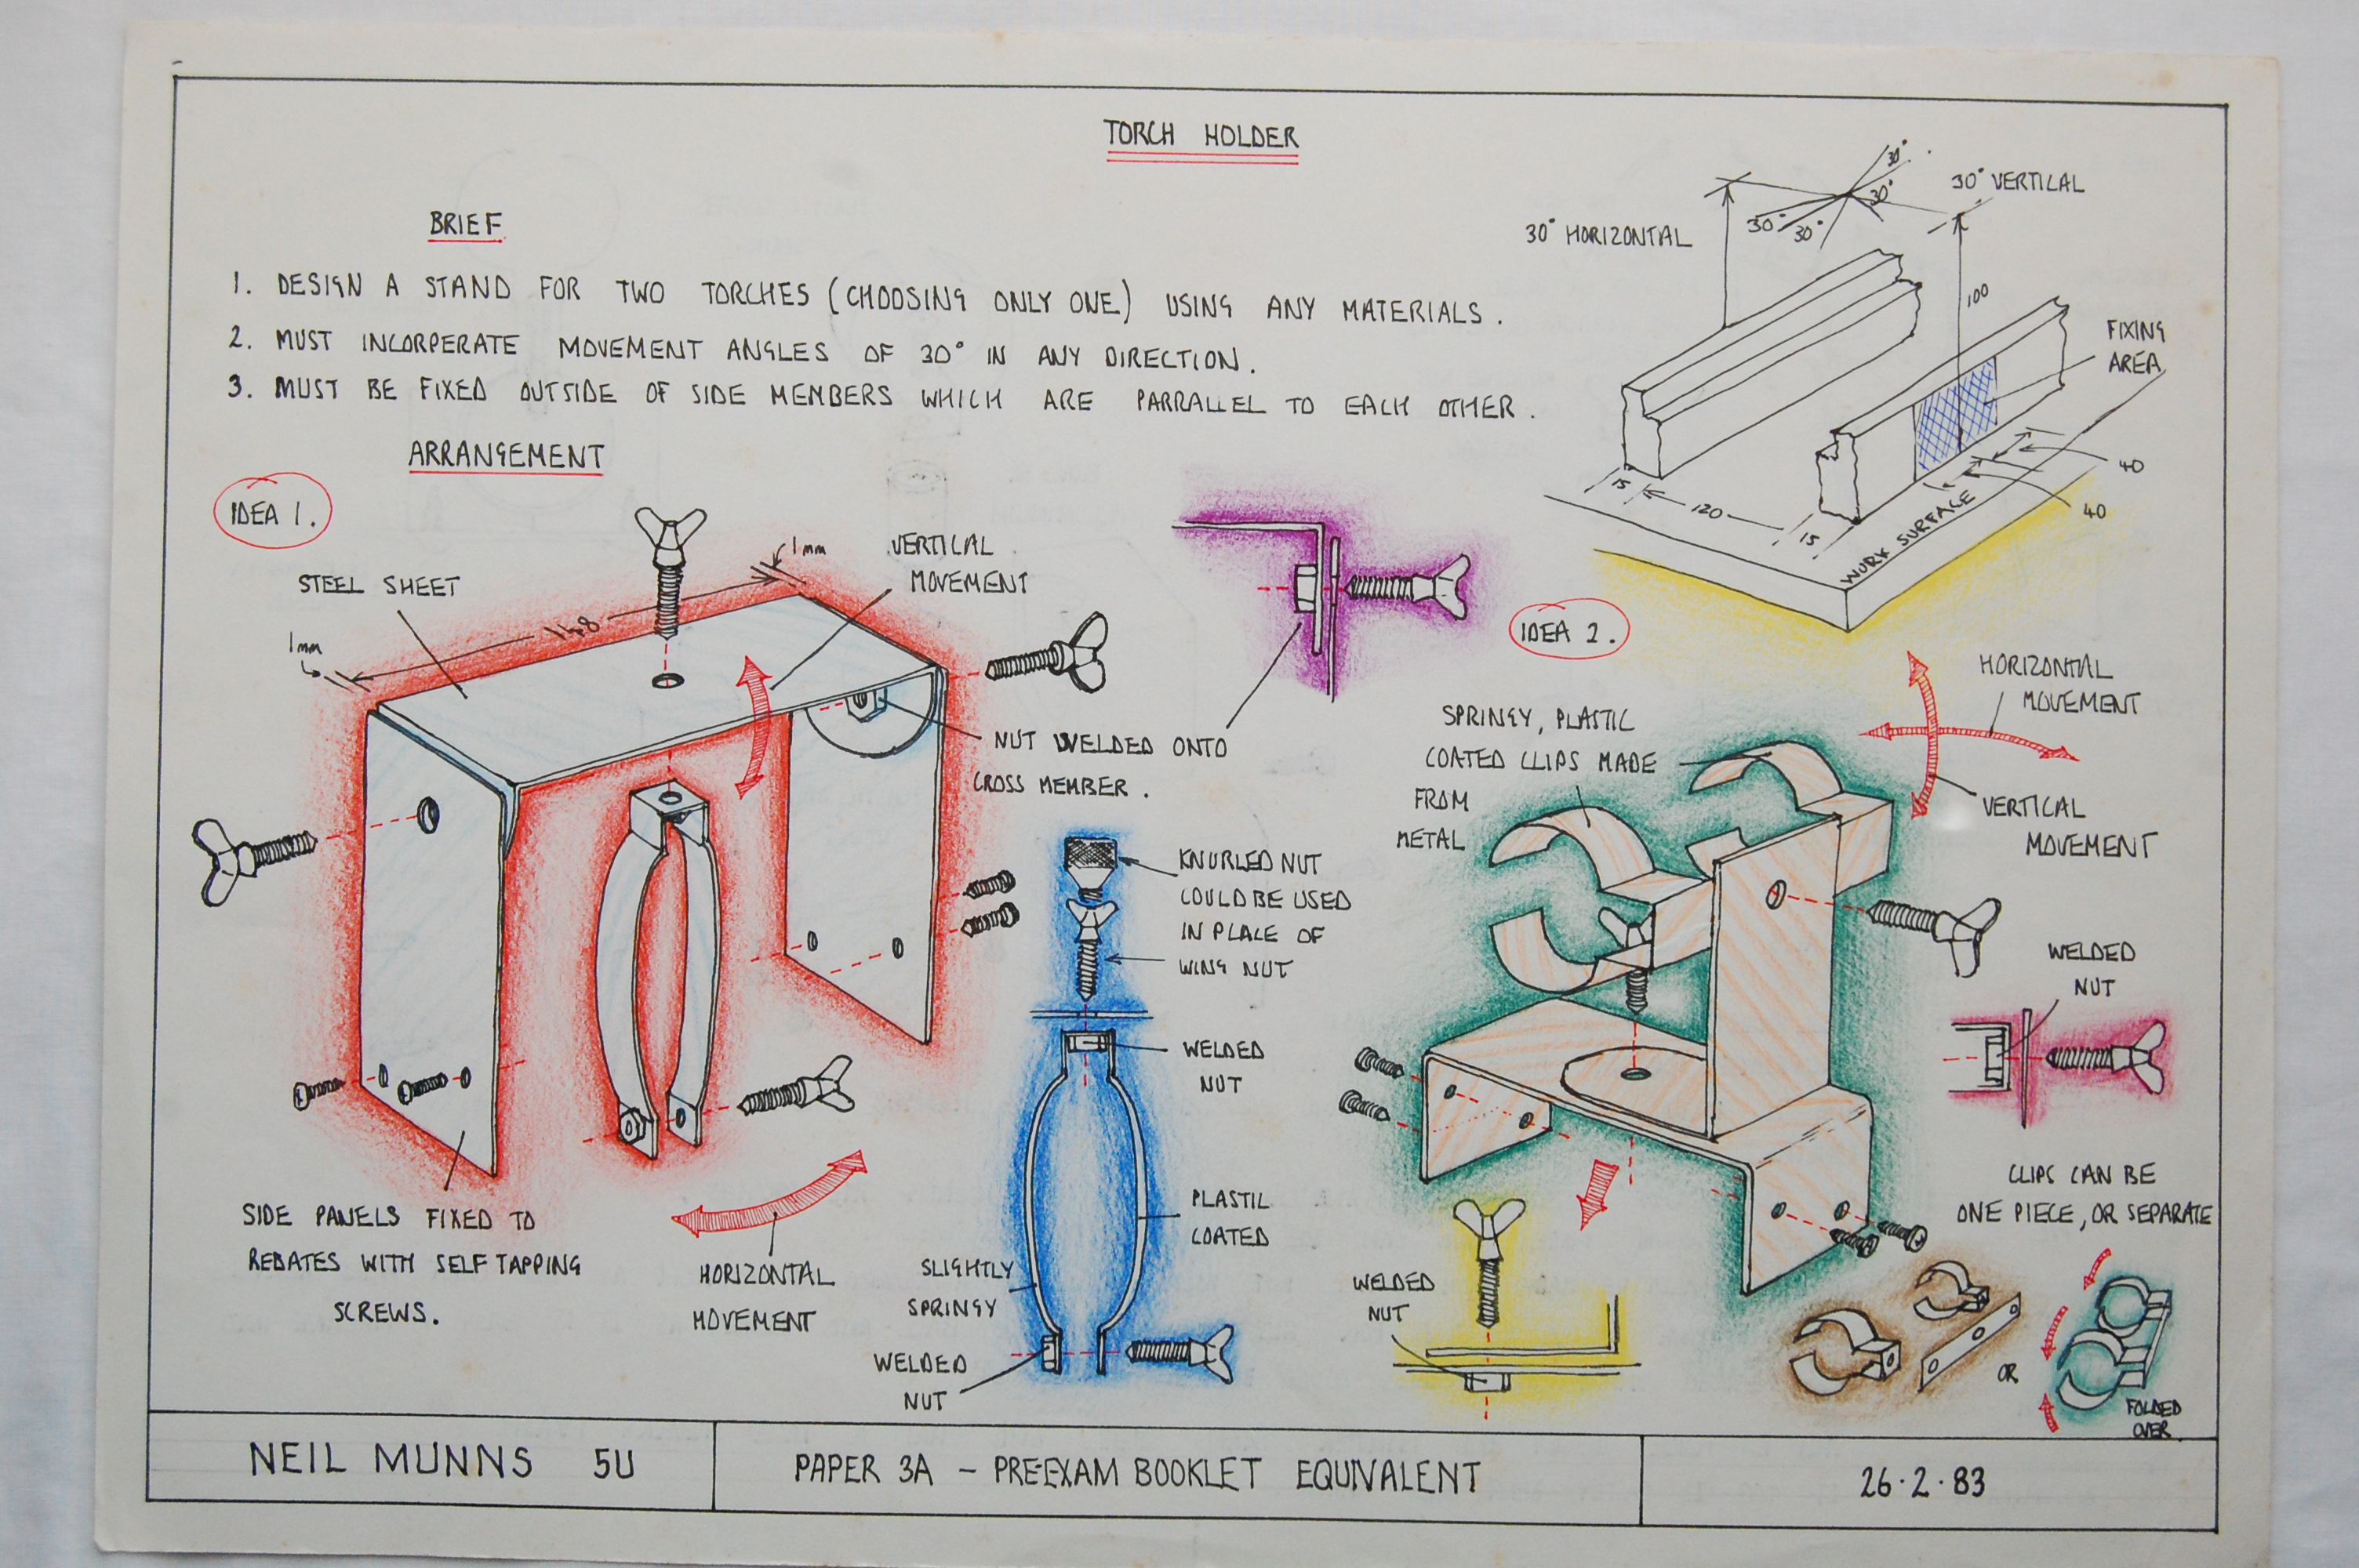 TORCH HOLDER
BRIEF
1. DESIGN A STAND FOR TWO TORCHES (CHOOSING ONLY ONE) USING ANY MATERIALS.
2. MUST INCORPERATE MOVEMENT ANGLES OF 30° IN ANY DIRECTION.
3. MUST BE FIXED OUTSIDE OF SIDE MEMBERS WHICH ARE PARRALLEL TO EACH OTHER.
30°
30°
30°
30°
30° VERTICAL
30° HORIZONTAL
100
FIXING
AREA
40
40
15
120
15
WORK SURFACE
ARRANGEMENT
IDEA 1.
STEEL SHEET
1mm
148
1mm
VERTICAL
MOVEMENT
NUT WELDED ONTO
CROSS MEMBER.
SIDE PANELS FIXED TO
REBATES WITH SELF TAPPING
SCREWS.
HORIZONTAL
MOVEMENT
KNURLED NUT
COULD BE USED
IN PLACE OF
WING NUT
WELDED
NUT
PLASTIC
COATED
SLIGHTLY
SPRINGY
WELDED
NUT
IDEA 2.
SPRINGY, PLASTIC
COATED CLIPS MADE
FROM
METAL
HORIZONTAL
MOVEMENT
VERTICAL
MOVEMENT
WELDED
NUT
WELDED
NUT
CLIPS CAN BE
ONE PIECE, OR SEPARATE
OR
FOLDED
OVER
NEIL MUNNS 5U
PAPER 3A - PRE-EXAM BOOKLET EQUIVALENT
26·2·83